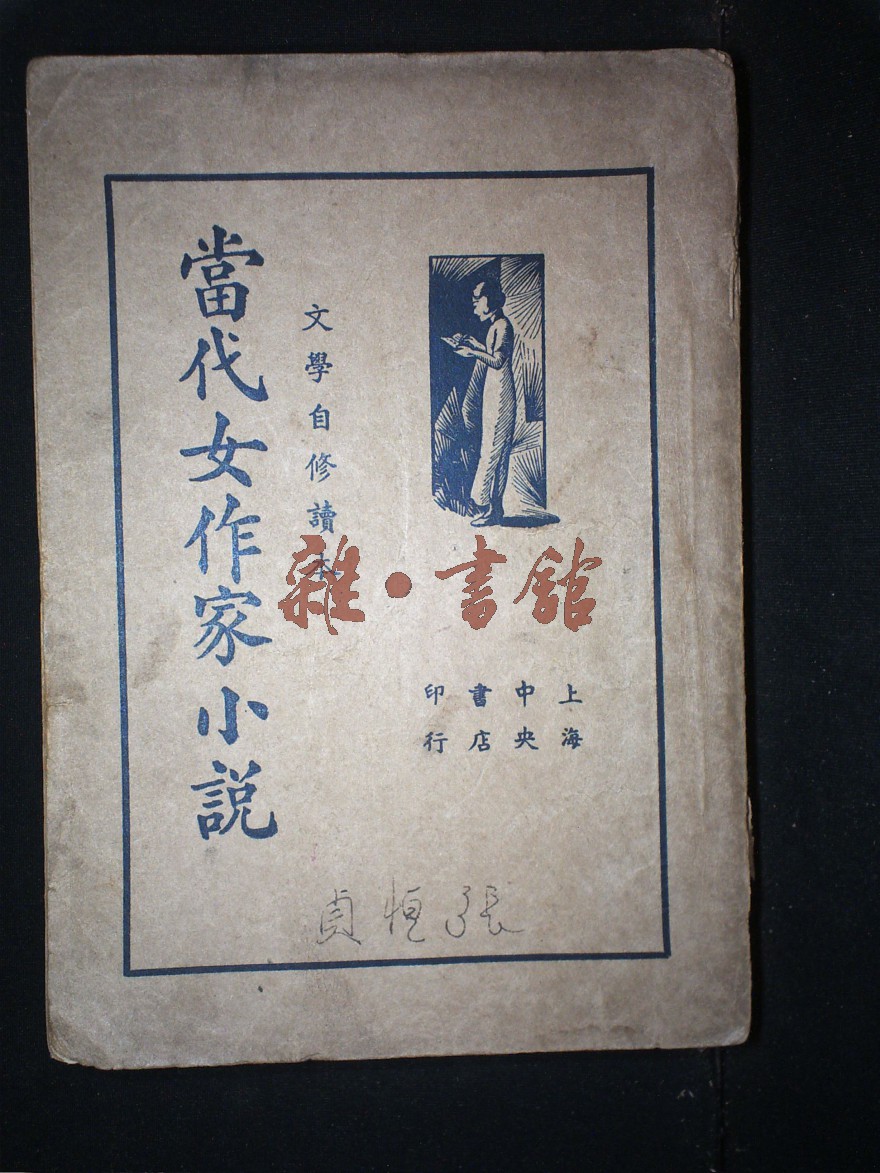 當代女作家小説
文學自修讀本
上海
中央
書店
印行
雜·書館
張恒貞